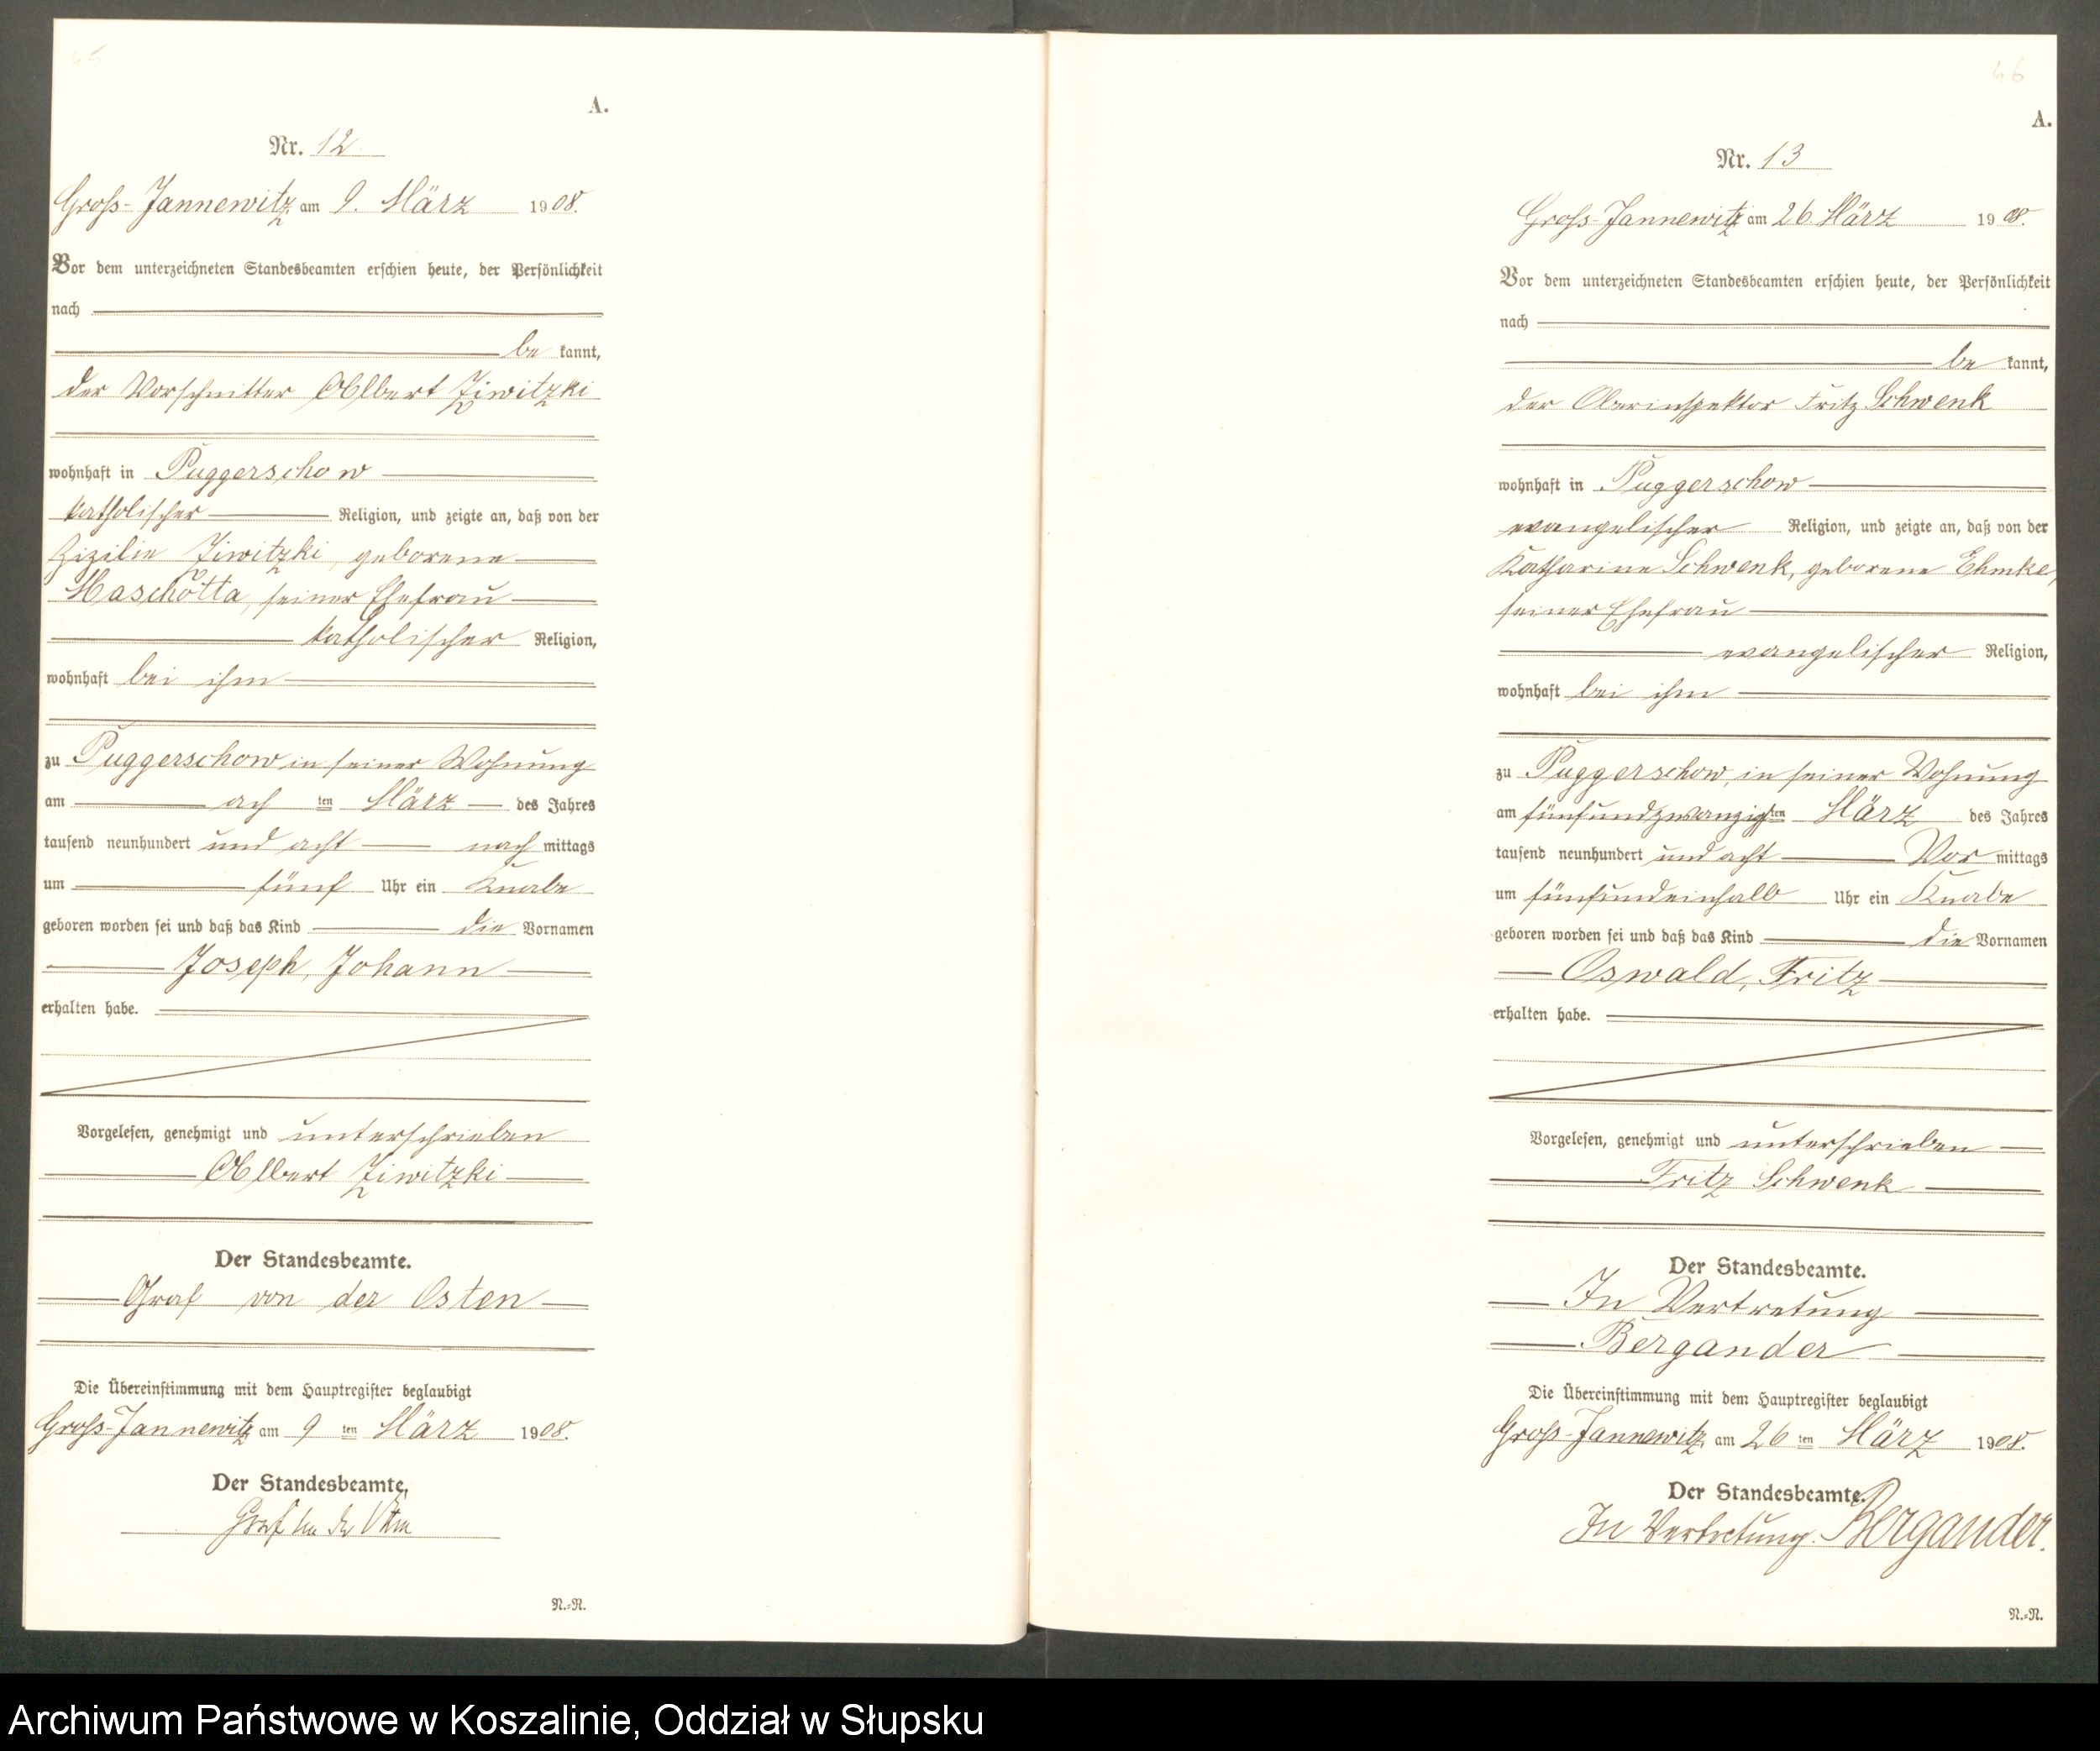 45
A.
Nr. 12
Groß-Jannewitz am 9. März 1908.
Vor dem unterzeichneten Standesbeamten erschien heute, der Persönlichkeit
nach
be kannt,
der Vorschnitter Albert Ziwitzki
wohnhaft in Puggerschow
katholischer Religion, und zeigte an, daß von der
Zizilie Ziwitzki, geborene
Maschotta, seiner Ehefrau
katholischer Religion,
wohnhaft bei ihm
zu Puggerschow in seiner Wohnung
am ach ten März des Jahres
tausend neunhundert und acht nach mittags
um fünf Uhr ein Knabe
geboren worden sei und daß das Kind die Vornamen
Joseph, Johann
erhalten habe.
Vorgelesen, genehmigt und unterschrieben
Albert Ziwitzki
Der Standesbeamte.
Graf von der Osten
Die Übereinstimmung mit dem Hauptregister beglaubigt
Groß-Jannewitz am 9 ten März 1908.
Der Standesbeamte.
Graf von der Osten
N.-N.
46
A.
Nr. 13
Groß-Jannewitz am 26. März 1908.
Vor dem unterzeichneten Standesbeamten erschien heute, der Persönlichkeit
nach
be kannt,
der Oberinspektor Fritz Schwenk
wohnhaft in Puggerschow
evangelischer Religion, und zeigte an, daß von der
Katharine Schwenk, geborene Ehmke,
seiner Ehefrau
evangelischer Religion,
wohnhaft bei ihm
zu Puggerschow, in seiner Wohnung
am fünfundzwanzigsten März des Jahres
tausend neunhundert und acht Vor mittags
um fünfundeinhalb Uhr ein Knabe
geboren worden sei und daß das Kind die Vornamen
Oswald, Fritz
erhalten habe.
Vorgelesen, genehmigt und unterschrieben
Fritz Schwenk
Der Standesbeamte.
In Vertretung
Bergander
Die Übereinstimmung mit dem Hauptregister beglaubigt
Groß-Jannewitz, am 26 ten März 1908.
Der Standesbeamte.
In Vertretung. Bergander.
N.-N.
Archiwum Państwowe w Koszalinie, Oddział w Słupsku